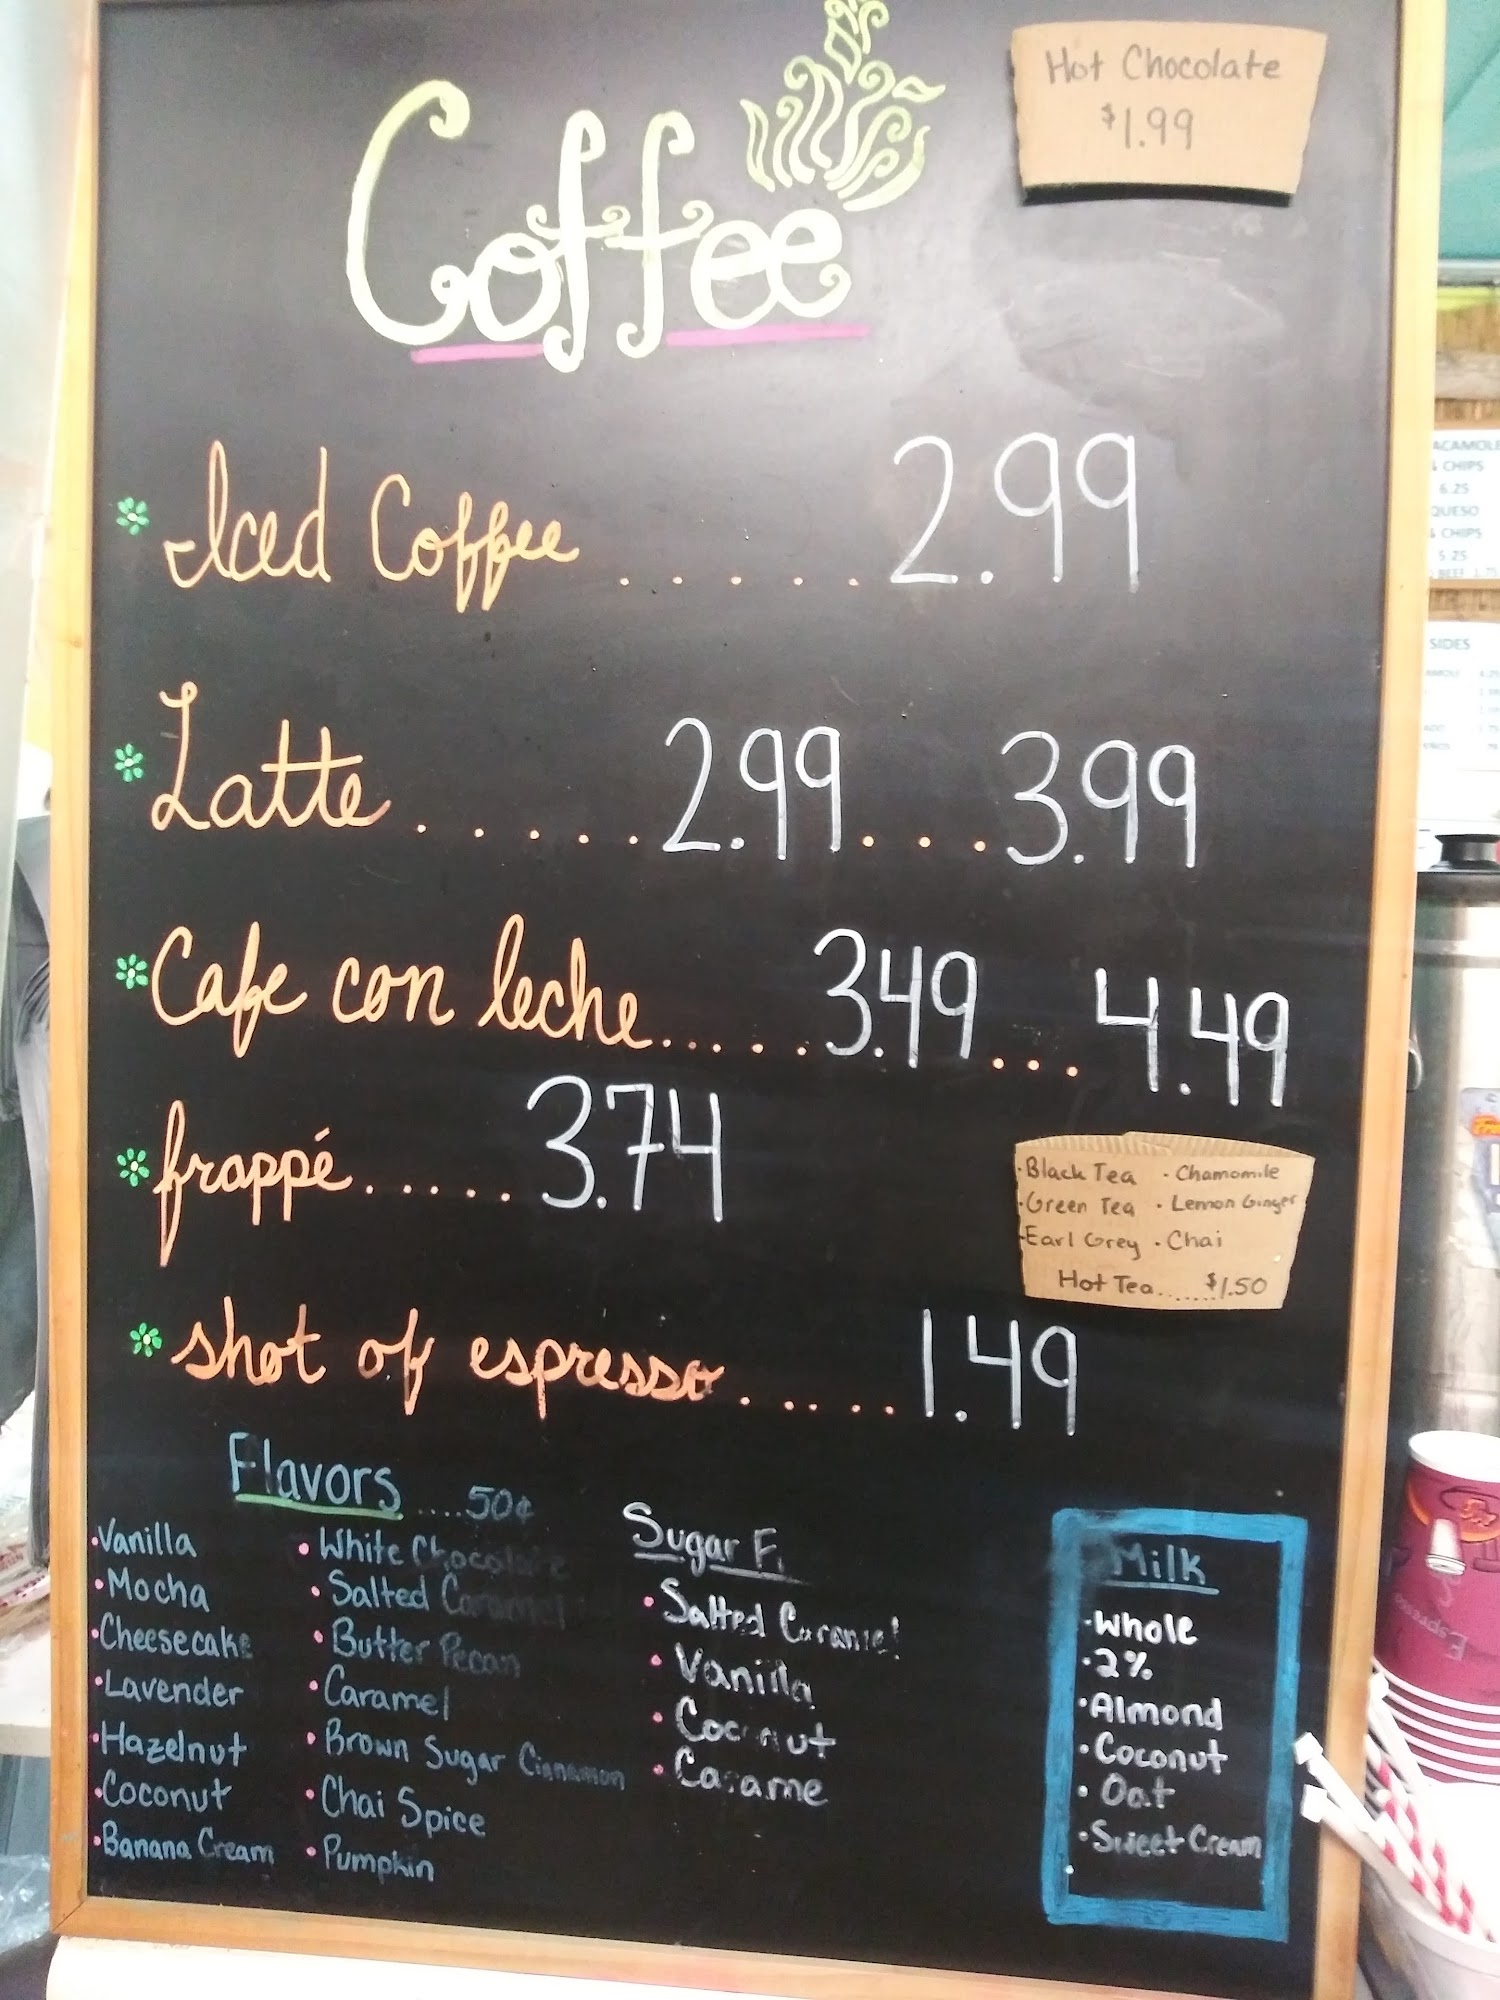 Coffee
Hot Chocolate
$1.99
Iced Coffee......2.99
Latte.....2.99...3.99
Cafe con leche.....3.49...4.49
frappé.....3.74
·Black Tea ·Chamomile
·Green Tea ·Lemon Ginger
·Earl Grey ·Chai
Hot Tea......$1.50
shot of espresso......1.49
Flavors....50¢
·Vanilla
·Mocha
·Cheesecake
·Lavender
·Hazelnut
·Coconut
·Banana Cream
·White Chocolate
·Salted Caramel
·Butter Pecan
·Caramel
·Brown Sugar Cinnamon
·Chai Spice
·Pumpkin
Sugar F.
·Salted Caramel
·Vanilla
·Coconut
·Carame
Milk
·Whole
·2%
·Almond
·Coconut
·Oat
·Sweet Cream
ACAMOLE
& CHIPS
6.25
QUESO
& CHIPS
5.25
SIDES
Espresso